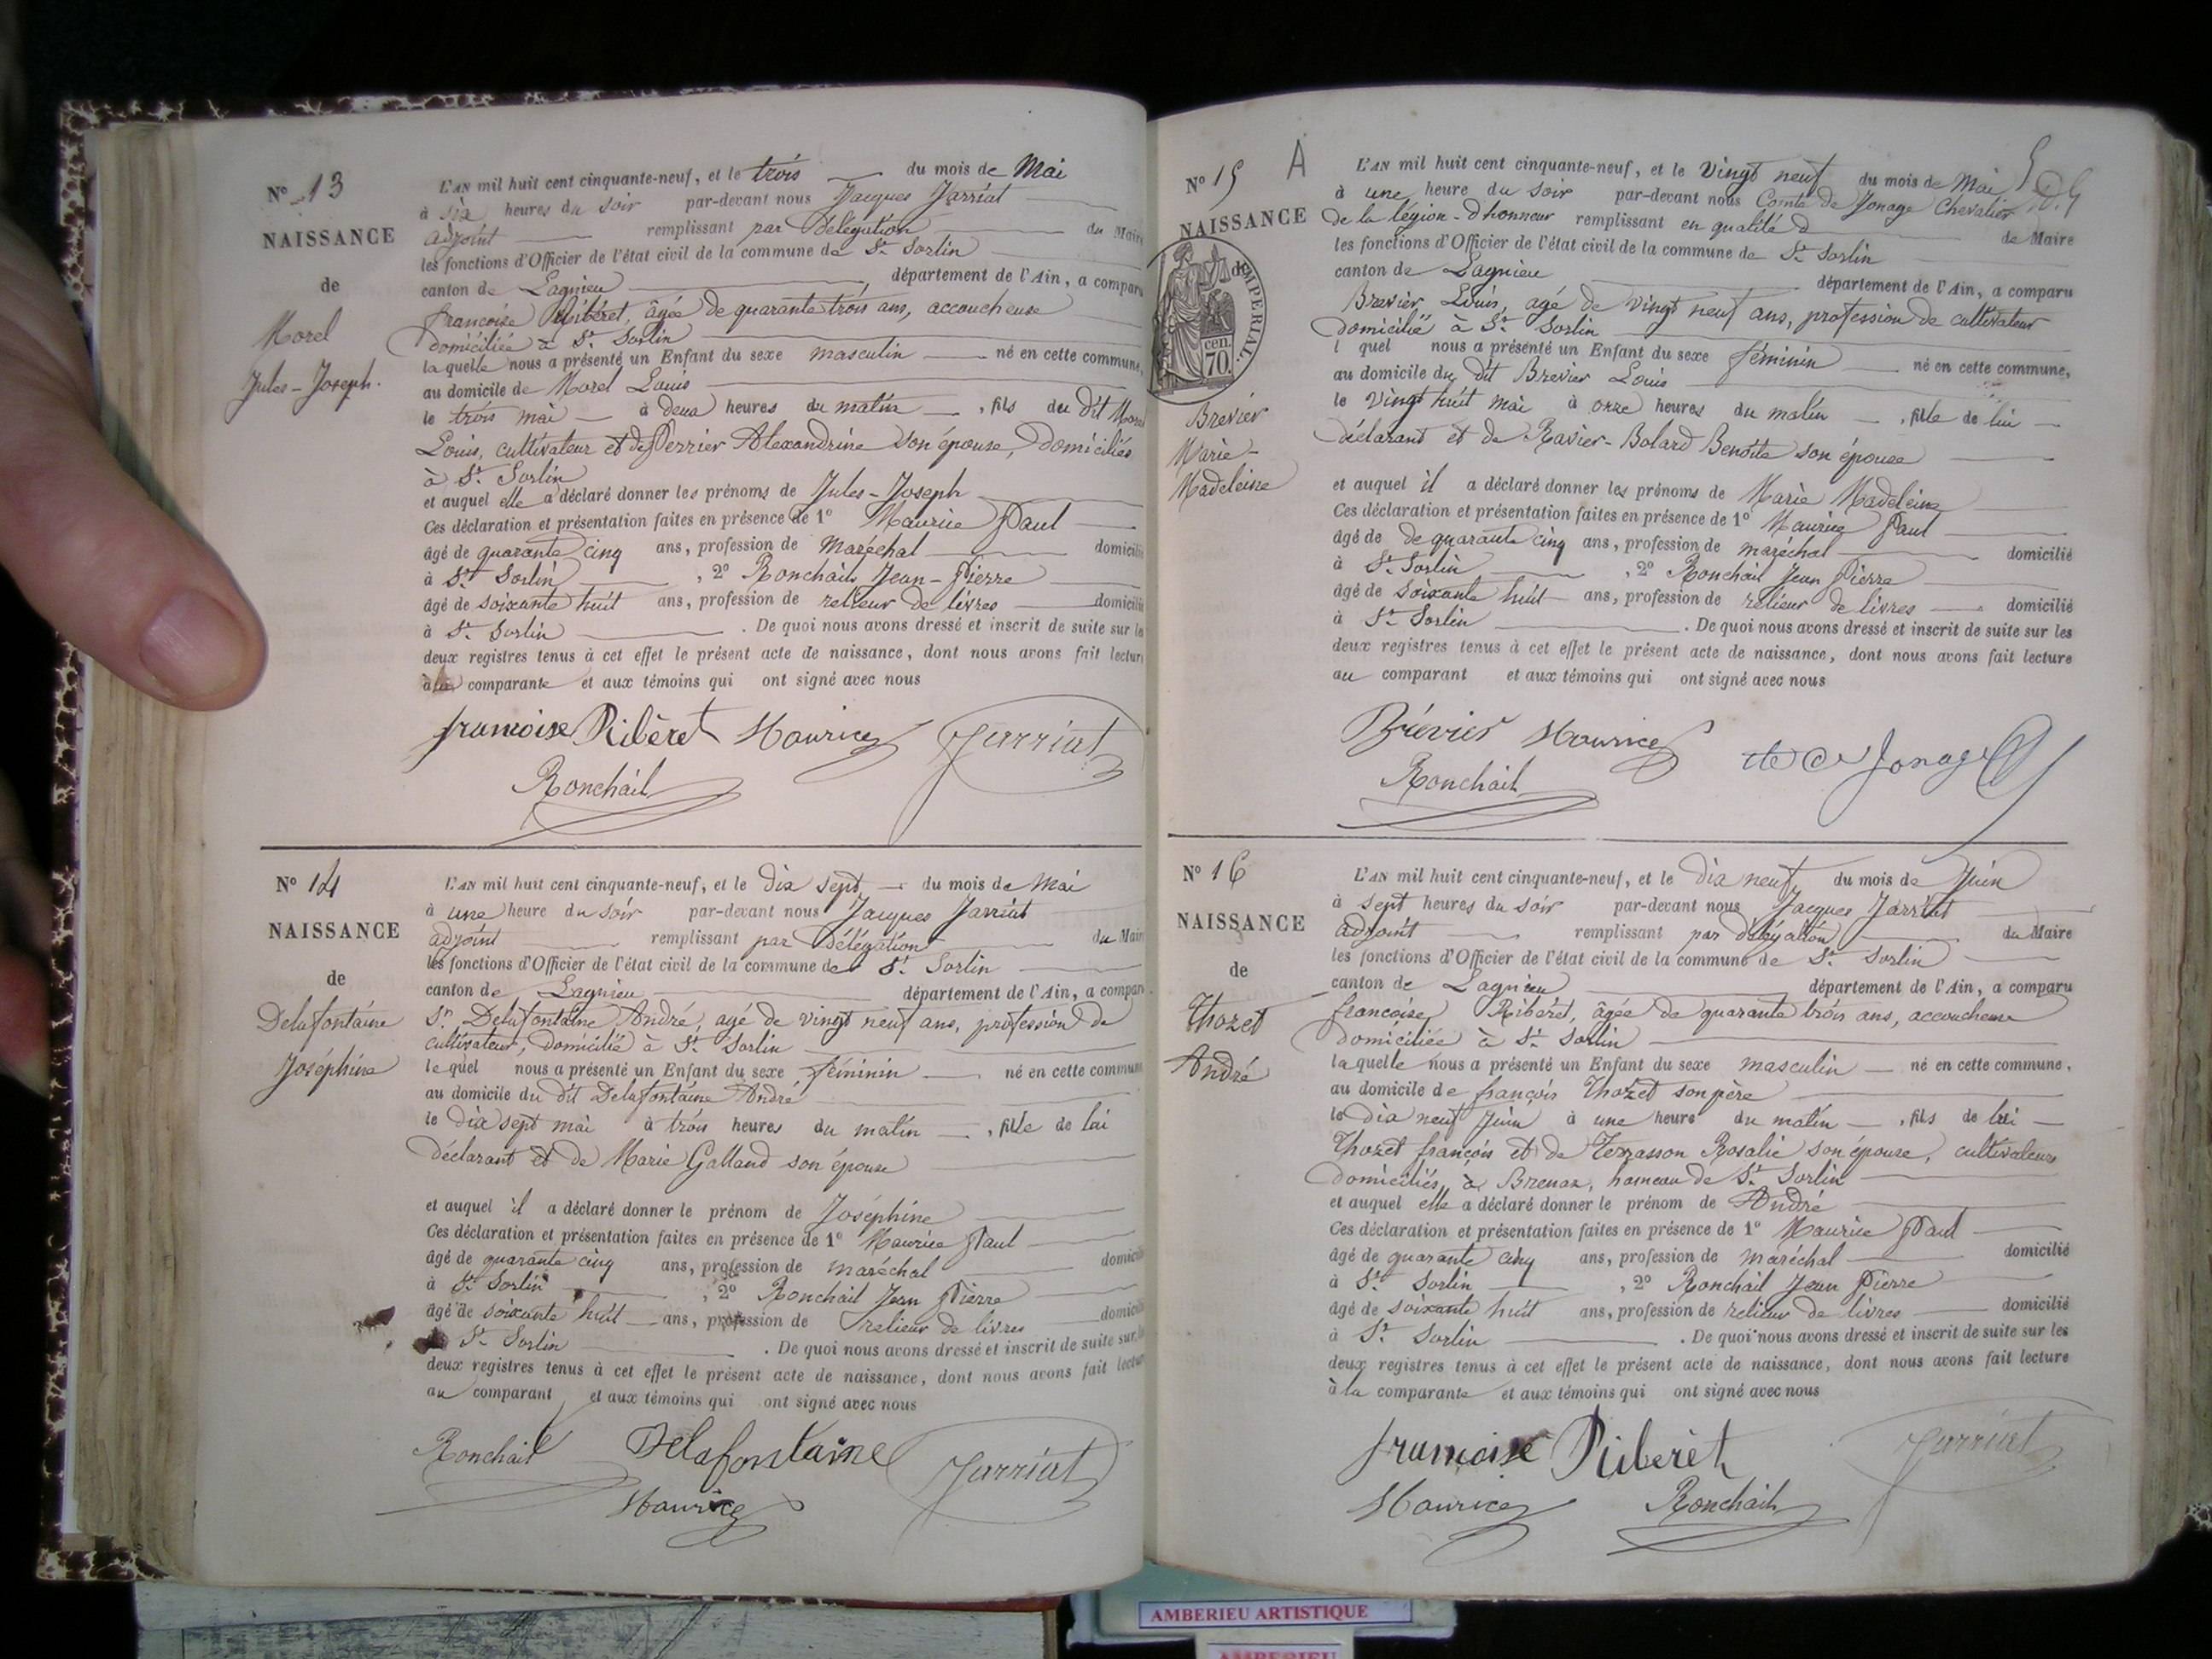 N° 13
NAISSANCE
de
Morel
Jules-Joseph.
L'AN mil huit cent cinquante-neuf, et le trois du mois de Mai
à six heures du soir par-devant nous Jacques Jarriat
adjoint remplissant par délégation du Maire
les fonctions d'Officier de l'état civil de la commune de St Sorlin
canton de Lagnieu, département de l'Ain, a comparu
françoise Ribéret, âgée de quarante trois ans, accoucheuse
domiciliée à St Sorlin
la quelle nous a présenté un Enfant du sexe masculin né en cette commune,
au domicile de Morel Louis
le trois mai à deux heures du matin, fils du dit Morel
Louis, cultivateur et de Perrier Alexandrine son épouse, domiciliés
à St Sorlin
et auquel elle a déclaré donner les prénoms de Jules-Joseph
Ces déclaration et présentation faites en présence de 1° Maurice Paul
âgé de quarante cinq ans, profession de Maréchal domicilié
à St Sorlin, 2° Ronchail Jean-Pierre
âgé de soixante huit ans, profession de relieur de livres domicilié
à St Sorlin. De quoi nous avons dressé et inscrit de suite sur les
deux registres tenus à cet effet le présent acte de naissance, dont nous avons fait lecture
à la comparante et aux témoins qui ont signé avec nous
francoise Ribèret Maurice Jarriat
Ronchail
N° 14
NAISSANCE
de
Delafontaine
Joséphine
L'AN mil huit cent cinquante-neuf, et le dix sept du mois de Mai
à une heure du soir par-devant nous Jacques Jarriat
adjoint remplissant par délégation du Maire
les fonctions d'Officier de l'état civil de la commune de St Sorlin
canton de Lagnieu département de l'Ain, a comparu
Sr Delafontaine André, agé de vingt neuf ans, profession de
cultivateur, domicilié à St Sorlin
le quel nous a présenté un Enfant du sexe féminin né en cette commune
au domicile du dit Delafontaine André
le dix sept mai à trois heures du matin, fille de lui
déclarant et de Marie Galland son épouse
et auquel il a déclaré donner le prénom de Joséphine
Ces déclaration et présentation faites en présence de 1° Maurice Paul
âgé de quarante cinq ans, profession de maréchal domicilié
à St Sorlin, 2° Ronchail Jean Pierre
âgé de soixante huit ans, profession de relieur de livres domicilié
St Sorlin. De quoi nous avons dressé et inscrit de suite sur les
deux registres tenus à cet effet le présent acte de naissance, dont nous avons fait lecture
au comparant et aux témoins qui ont signé avec nous
Ronchail Delafontaine Jarriat
Maurice
N° 15 A
NAISSANCE
de
IMPERIAL.
70 cen.
Brevier
Marie-
Madeleine
L'AN mil huit cent cinquante-neuf, et le Vingt neuf du mois de Mai
à une heure du soir par-devant nous Comte de Jonage Chevalier
de la légion-d'honneur remplissant en qualité d de Maire
les fonctions d'Officier de l'état civil de la commune de St Sorlin
canton de Lagnieu département de l'Ain, a comparu
Brevier Louis, agé de vingt neuf ans, profession de cultivateur
domicilié à St Sorlin
l quel nous a présenté un Enfant du sexe féminin né en cette commune,
au domicile du dit Brevier Louis
le vingt huit mai à onze heures du matin, fille de lui
déclarant et de Ravier-Bolard Benoîte son épouse
et auquel il a déclaré donner les prénoms de Marie Madeleine
Ces déclaration et présentation faites en présence de 1° Maurice Paul
âgé de de quarante cinq ans, profession de maréchal domicilié
à St Sorlin, 2° Ronchail Jean Pierre
âgé de soixante huit ans, profession de relieur de livres domicilié
à St Sorlin. De quoi nous avons dressé et inscrit de suite sur les
deux registres tenus à cet effet le présent acte de naissance, dont nous avons fait lecture
au comparant et aux témoins qui ont signé avec nous
Brévier Maurice Jonage
Ronchail
N° 16
NAISSANCE
de
Thozet
André
L'AN mil huit cent cinquante-neuf, et le dix neuf du mois de Juin
à sept heures du soir par-devant nous Jacques Jarriat
adjoint remplissant par délégation du Maire
les fonctions d'Officier de l'état civil de la commune de St Sorlin
canton de Lagnieu département de l'Ain, a comparu
francoise Ribéret, âgée de quarante trois ans, accoucheuse
domiciliée à St Sorlin
la quelle nous a présenté un Enfant du sexe masculin né en cette commune,
au domicile de françois Thozet son père
le dix neuf Juin à une heure du matin, fils de lui
Thozet françois et de Terrasson Rosalie son épouse, cultivateurs
domiciliés à Brenaz, hameau de St Sorlin
et auquel elle a déclaré donner le prénom de André
Ces déclaration et présentation faites en présence de 1° Maurice Paul
âgé de quarante cinq ans, profession de maréchal domicilié
à St Sorlin, 2° Ronchail Jean Pierre
âgé de soixante huit ans, profession de relieur de livres domicilié
à St Sorlin. De quoi nous avons dressé et inscrit de suite sur les
deux registres tenus à cet effet le présent acte de naissance, dont nous avons fait lecture
à la comparante et aux témoins qui ont signé avec nous
francoise Riberèt Jarriat
Maurice Ronchail
AMBERIEU ARTISTIQUE
AMBERIEU